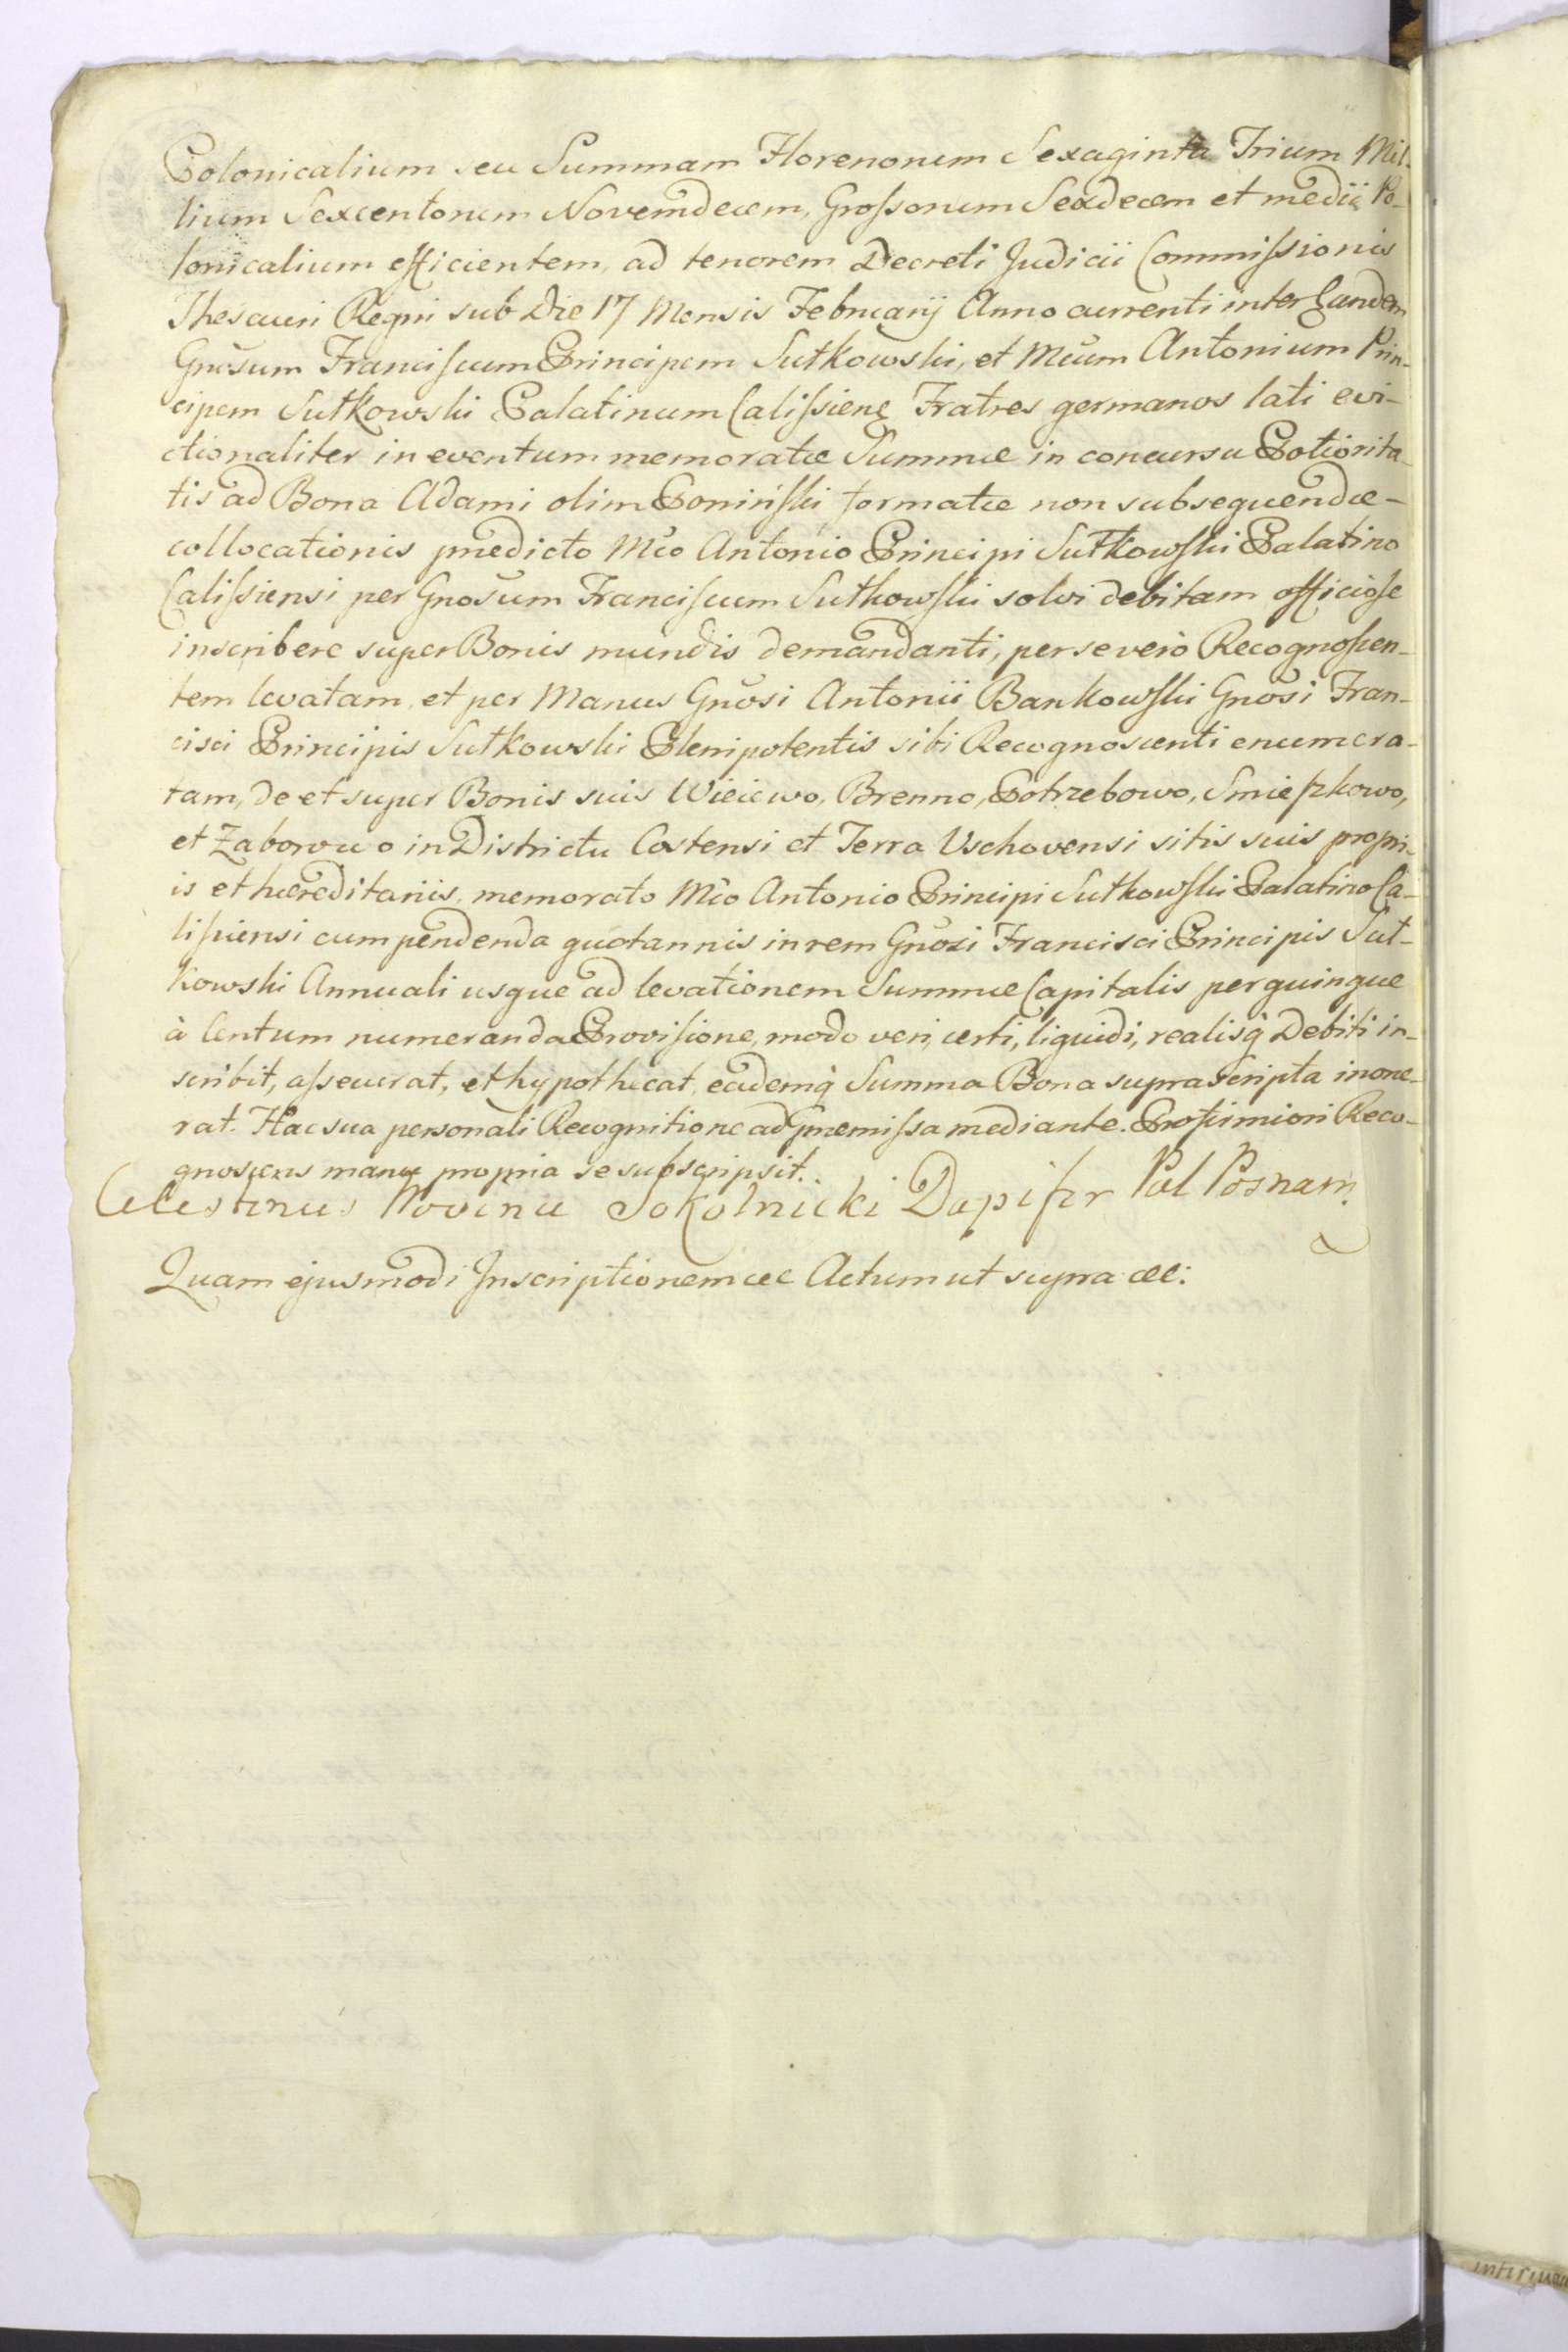 Polonicalium seu Summam Florenorum Sexaginta Trium Mil-
lium Sexcentorum Novemdecem, Grossorum Sexdecem et medii Po-
lonicalium efficientem, ad tenorem Decreti Judicii Commissionis
Thesauri Regni sub Die 17 Mensis Februarij Anno currenti inter eundem
Gnosum Franciscum Principem Sułkowski, et Mcum Antonium Prin-
cipem Sułkowski Palatinum Calissiene Fratres germanos lati evi-
ctionaliter in eventum memoratæ Summæ in concursu Potiorita-
tis ad Bona Adami olim Poniński formatæ non subsequendæ-
collocationis prædicto Mco Antonio Principi Sułkowski Palatino
Calissiensi per Gnosum Franciscum Sułkowski solvi debitam officiose
inscribere super Bonis mundis demandanti, per se vero Recognoscen-
tem levatam, et per Manus Gnosi Antonii Bankowski Gnosi Fran-
cisci Principis Sułkowski Plenipotentis sibi Recognoscenti enumera-
tam, de et super Bonis suis Wiiewo, Brenno, Potrzebowo, Smieszkowo,
et Zaborowo in Districtu Costensi et Terra Vschovensi sitis suis propri-
is et hæreditariis, memorato Mco Antonio Principi Sułkowski Palatino Ca-
lissiensi cum pendenda quotannis in rem Gnosi Francisci Principis Suł-
kowski Annuali usque ad levationem Summæ Capitalis per quinque
à Centum numeranda Provisione, modo veri, certi, liquidi, realisq Debiti in-
scribit, asseverat, et hypothecat, eademq Summa Bona suprascripta inone-
rat. Hac sua personali Recognitione ad præmissa mediante. Pro firmiori Reco-
gnoscens manu propria se subscripsit.
Celestinus Novina Sokolnicki Dapifer Pal Posnan
Quam ejusmodi Inscriptionem &c Actum ut supra &c: